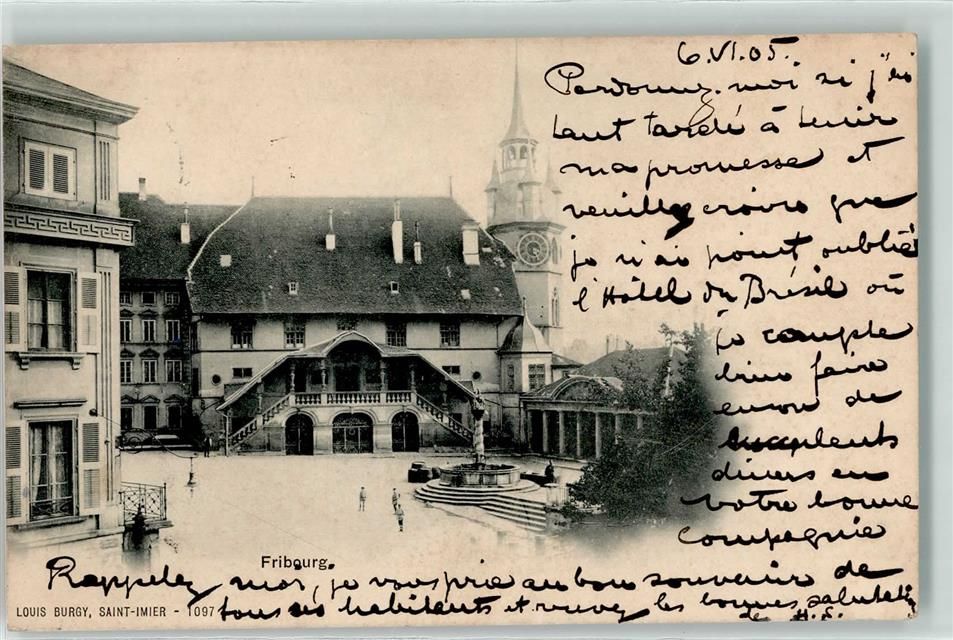 6.VI.05.
Pardonnez-moi si j'ai
tant tardé à tenir
ma promesse et
veuillez croire que
je n'ai point oublié
l'Hôtel du Brésil où
je compte
bien faire
encore de
succulents
diners en
votre bonne
compagnie
Fribourg.
Rappelez moi, je vous prie au bon souvenir de
tous ses habitants et recevez les bonnes salutations
de H.S.
LOUIS BURGY, SAINT-IMIER - 1097